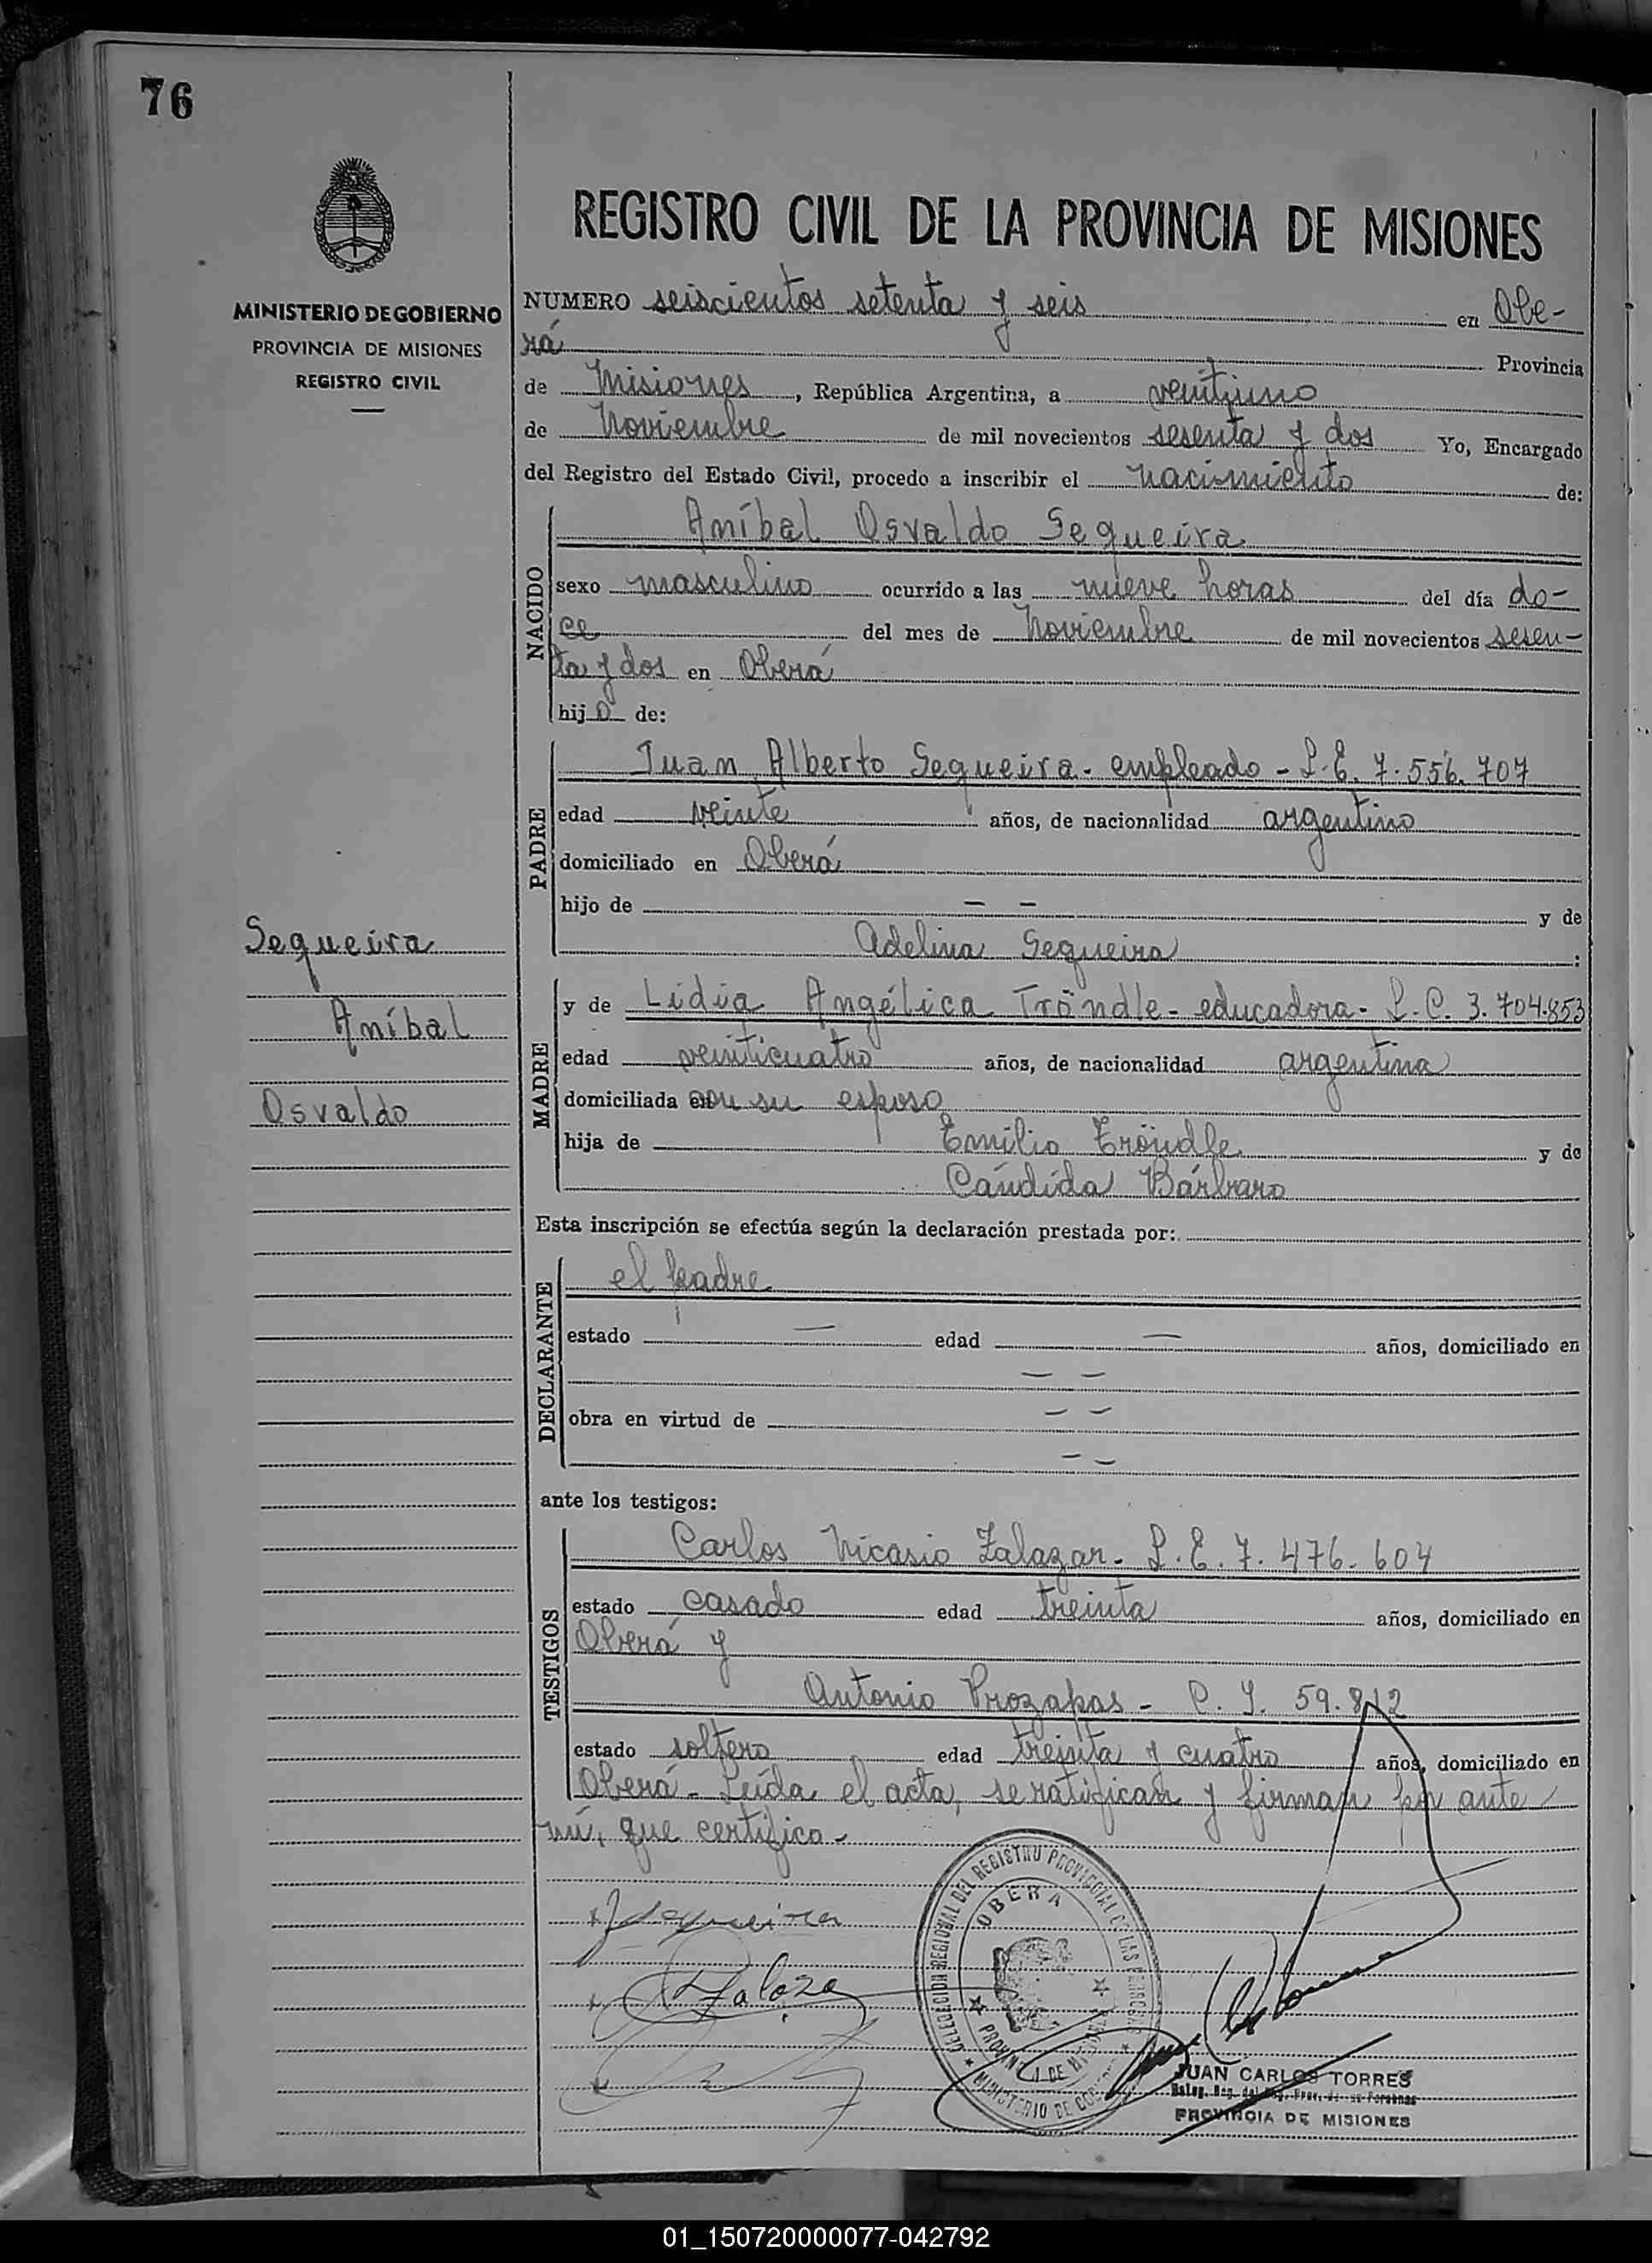 76
REGISTRO CIVIL DE LA PROVINCIA DE MISIONES
MINISTERIO DE GOBIERNO
PROVINCIA DE MISIONES
REGISTRO CIVIL
NUMERO seiscientos setenta y seis en Obe-
rá Provincia
de Misiones, República Argentina, a veintiuno
de Noviembre de mil novecientos sesenta y dos Yo, Encargado
del Registro del Estado Civil, procedo a inscribir el nacimiento de:
NACIDO
Aníbal Osvaldo Sequeira
sexo masculino ocurrido a las nueve horas del día do-
ce del mes de Noviembre de mil novecientos sesen-
ta y dos en Oberá
hijo de:
PADRE
Juan Alberto Sequeira - empleado - L.E. 7.556.707
edad veinte años, de nacionalidad argentino
domiciliado en Oberá
hijo de — — y de
Adelina Sequeira :
Sequeira
Aníbal
Osvaldo
MADRE
y de Lidia Angélica Tröndle - educadora - L.C. 3.704.853
edad veinticuatro años, de nacionalidad argentina
domiciliada con su esposo
hija de Emilio Tröndle y de
Cándida Bárbaro
Esta inscripción se efectúa según la declaración prestada por:
DECLARANTE
el padre
estado — edad — años, domiciliado en
— —
obra en virtud de — —
— —
ante los testigos:
TESTIGOS
Carlos Nicasio Zalazar - L.E. 7.476.604
estado casado edad treinta años, domiciliado en
Oberá y
Antonio Prozapas - C.I. 59.812
estado soltero edad treinta y cuatro años, domiciliado en
Oberá - Leída el acta, se ratifican y firman por ante
mí, que certifico -
JSequeira
Zalaza
DELEGACION REGIONAL DEL REGISTRO PROVINCIAL DE LAS PERSONAS
OBERA
PROVINCIA DE MISIONES
MINISTERIO DE GOBIERNO
JUAN CARLOS TORRES
Deleg. Reg. del Reg. Prov. de las Personas
PROVINCIA DE MISIONES
01_150720000077-042792